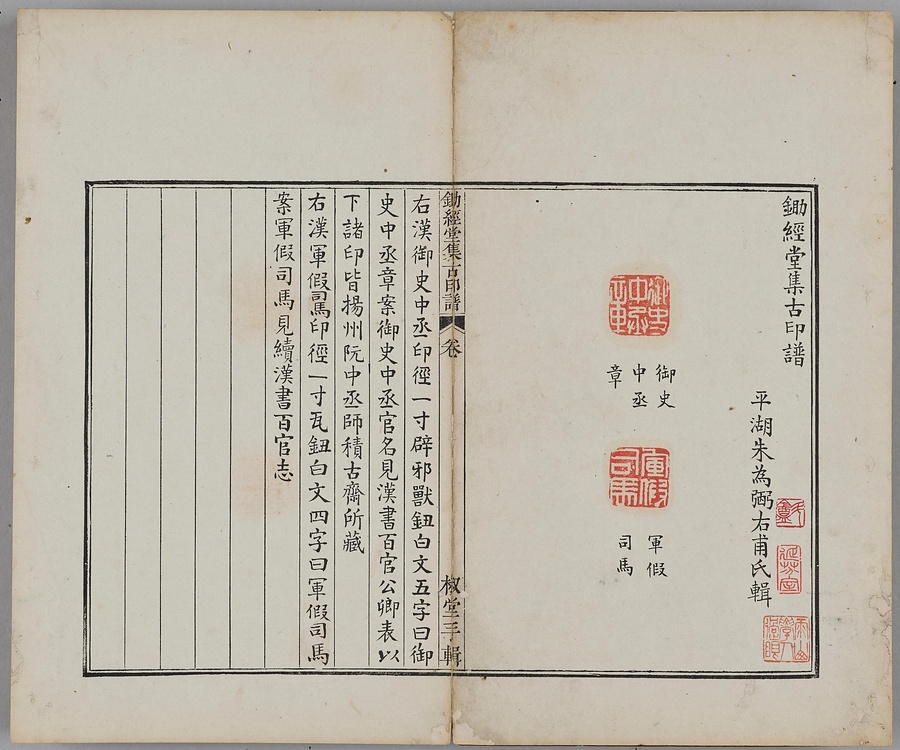 鋤經堂集古印譜
平湖朱為弼右甫氏輯
御史
中丞
章
軍假
司馬
鋤經堂集古印譜
卷
椒堂手輯
右漢御史中丞印徑一寸辟邪獸鈕白文五字曰御
史中丞章案御史中丞官名見漢書百官公卿表以
下諸印皆揚州阮中丞師積古齋所藏
右漢軍假司馬印徑一寸瓦鈕白文四字曰軍假司馬
案軍假司馬見續漢書百官志